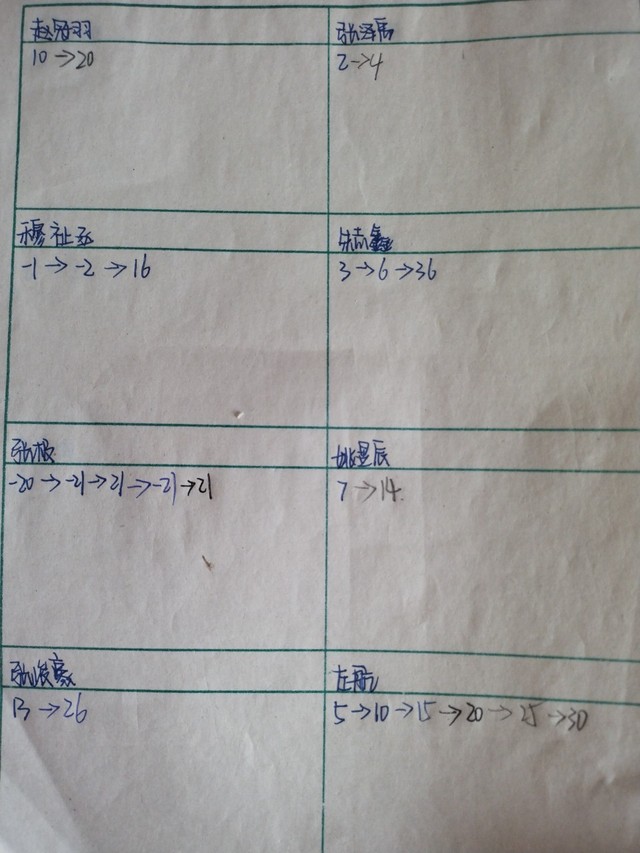 赵冠羽
10→20
张泽禹
2→4
穆祉丞
-1→-2→16
朱志鑫
3→6→36
张极
-20→-21→21→-21→21
姚昱辰
7→14
张峻豪
13→26
左航
5→10→15→20→25→30